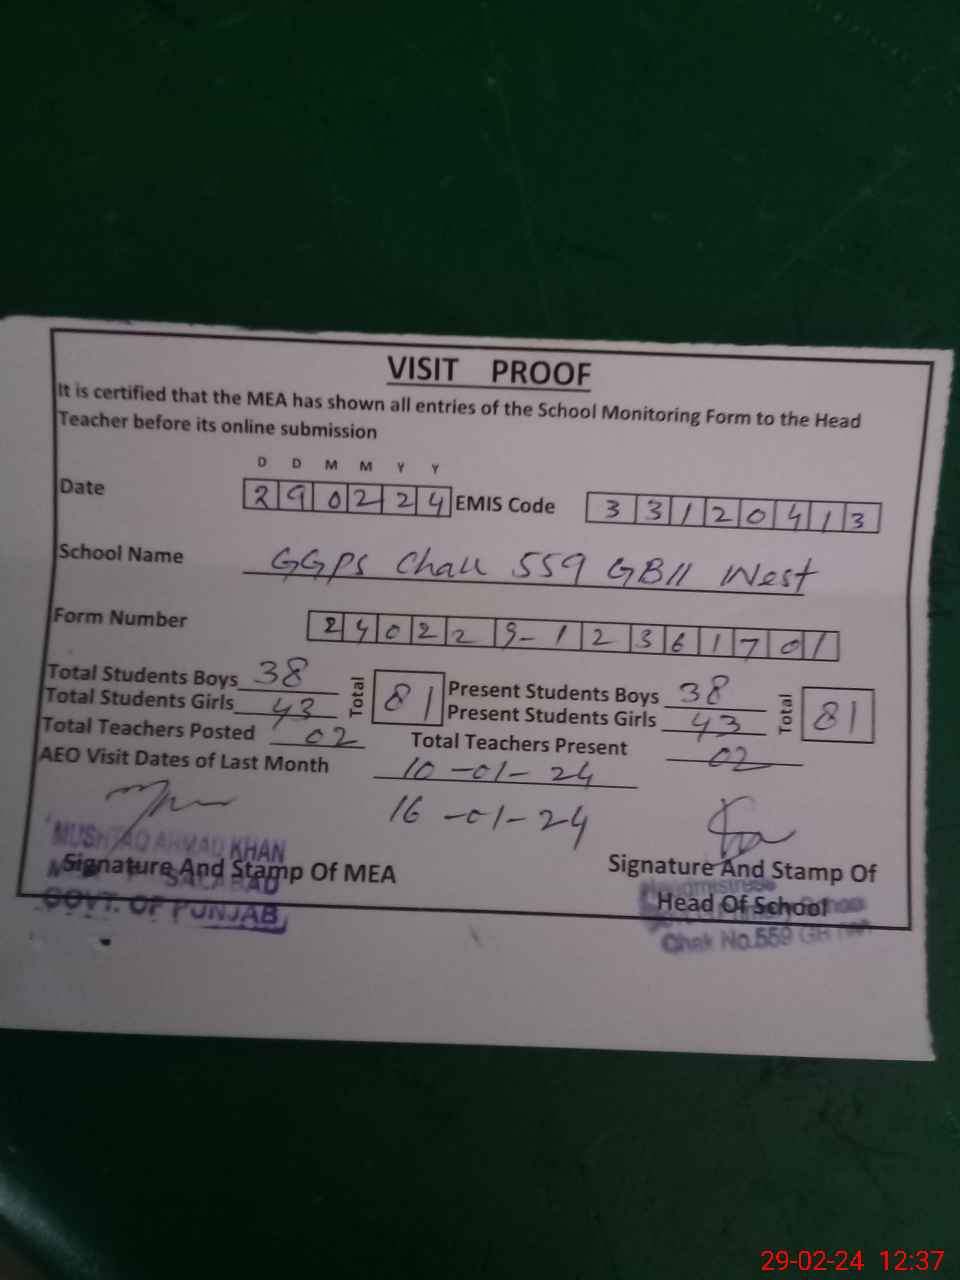 VISIT PROOF
It is certified that the MEA has shown all entries of the School Monitoring Form to the Head
Teacher before its online submission
D D M M Y Y
Date 290224 EMIS Code 33120413
School Name GGPS Chak 559 GBII West
Form Number 240229-12361701
Total Students Boys 38 Total 81 Present Students Boys 38 Total 81
Total Students Girls 43 Present Students Girls 43
Total Teachers Posted 02 Total Teachers Present 02
AEO Visit Dates of Last Month 10-01-24
16-01-24
MUSHTAQ AHMAD KHAN
Signature And Stamp Of MEA Signature And Stamp Of
Head Of School
GOVT. OF PUNJAB
Chak No.559
29-02-24 12:37